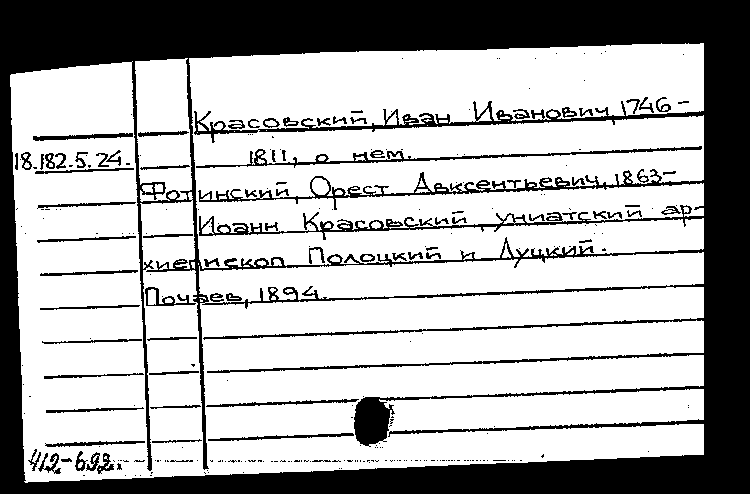 Красовский, Иван Иванович, 1746-
18.182.5.24. 1811, о нем.
Фотинский, Орест Авксентьевич, 1863-
Иоанн Красовский, униатский ар-
хиепископ Полоцкий и Луцкий.
Почаев, 1894.